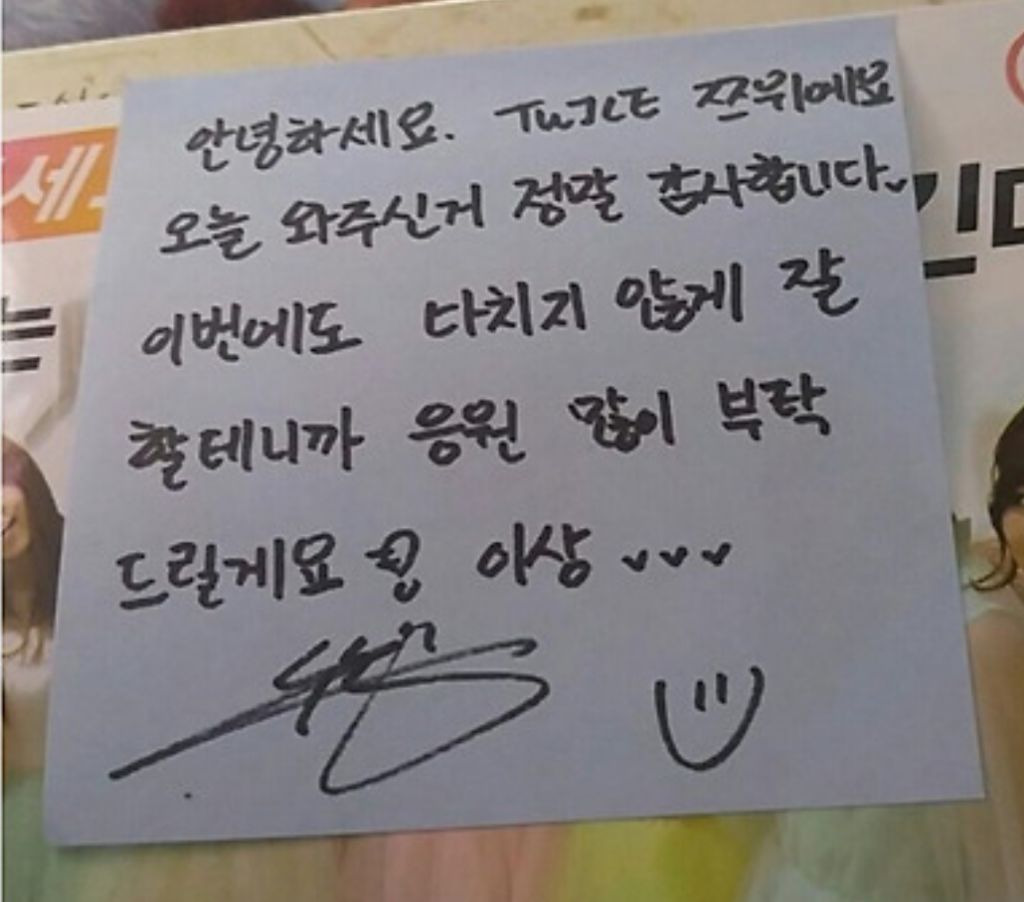 안녕하세요. TWICE 쯔위에요
오늘 와주신거 정말 감사합니다.
이번에도 다치지 않게 잘
할테니까 응원 많이 부탁
드릴게요 이상...
세
는